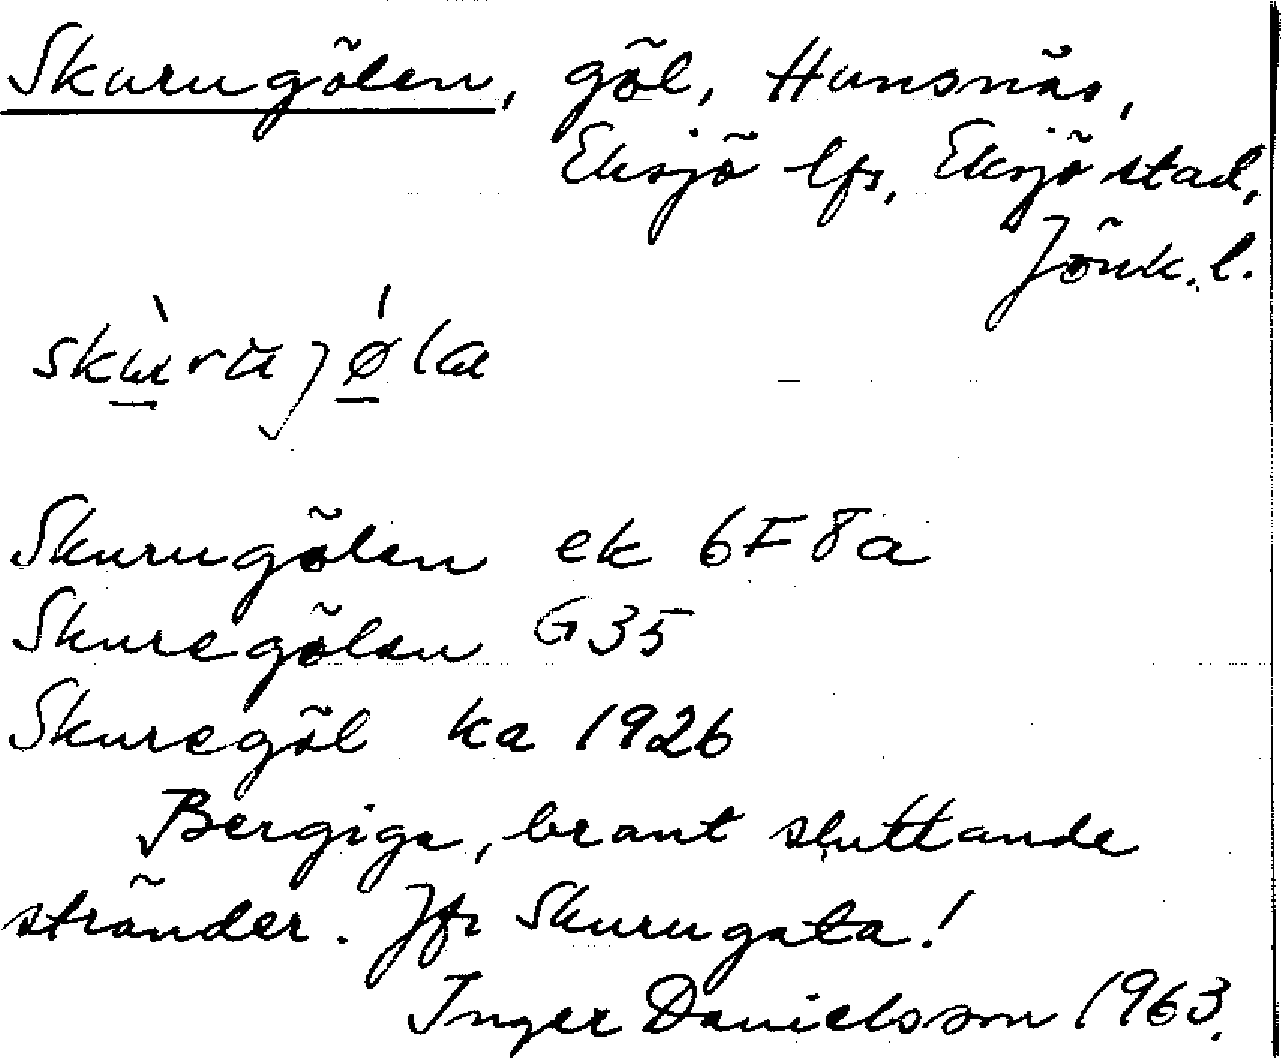 Skurugölen, göl, Hunsnäs,
Eksjö lfs, Eksjö stad,
Jönk. l.
Skurugölen ek 6F8a
Skuregölen G35
Skuregöl ka 1926
Bergiga, brant sluttande
stränder. Jfr Skurugata!
Inger Danielsson 1963.